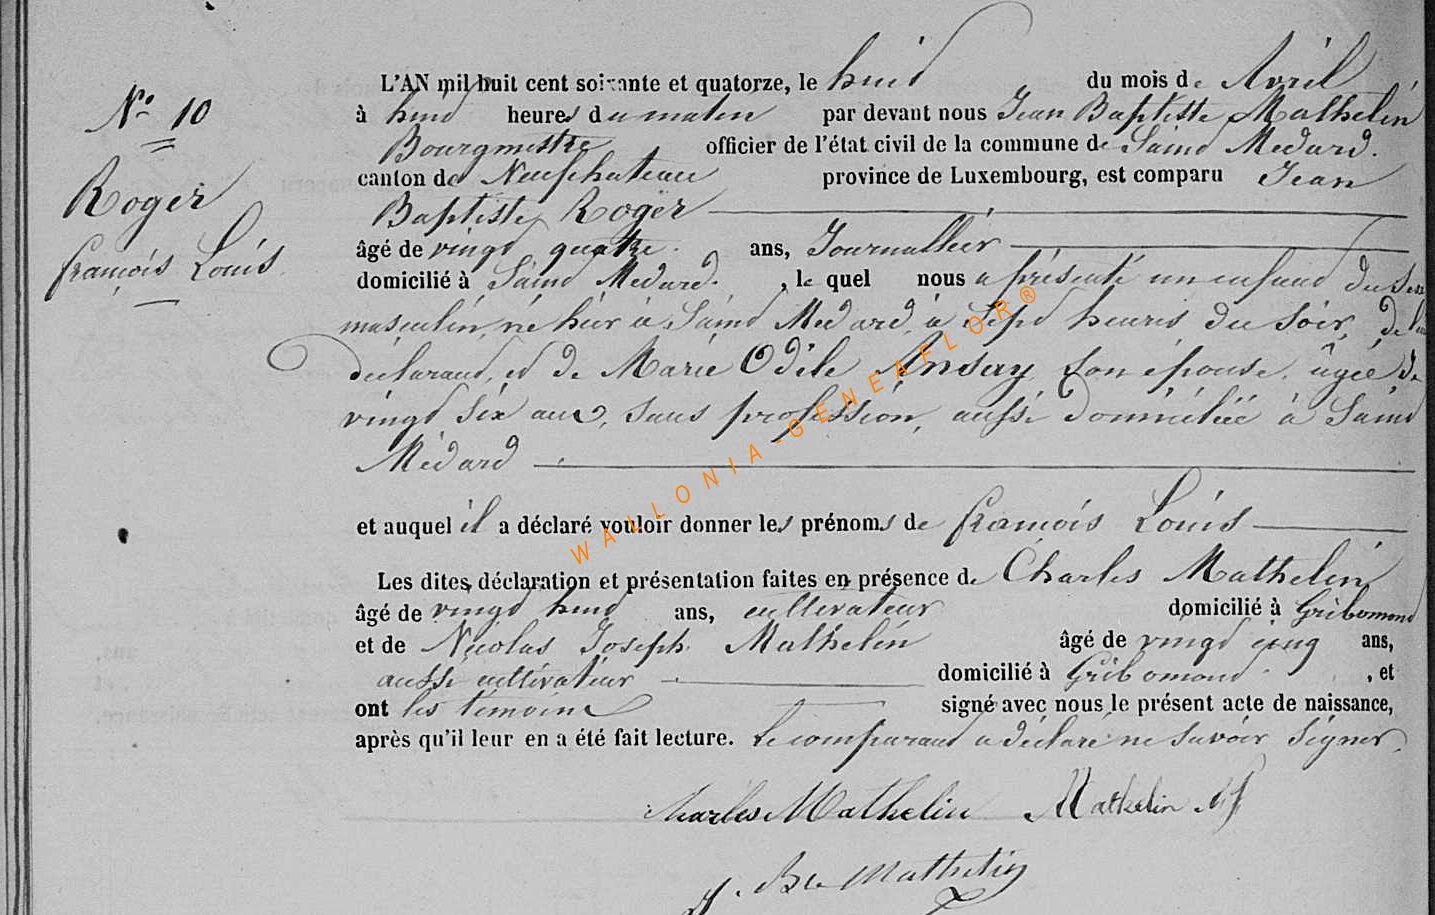 N° 10
Roger
François Louis
L'AN mil huit cent soixante et quatorze, le huit du mois de Avril
à huit heures du matin par devant nous Jean Baptiste Mathelin
Bourgmestre officier de l'état civil de la commune de Saint Médard.
canton de Neufchateau province de Luxembourg, est comparu Jean
Baptiste Roger
âgé de vingt quatre ans, Journallier
domicilié à Saint Médard. , le quel nous a présenté un enfant du sexe
masculin, né hier à Saint Médard, à sept heures du soir, de lui
déclarant, et de Marie Odile Ansay son épouse, âgée de
vingt six ans, sans profession, aussi domiciliée à Saint
Médard
et auquel il a déclaré vouloir donner les prénoms de François Louis
Les dites déclaration et présentation faites en présence de Charles Mathelin
âgé de vingt huit ans, cultivateur domicilié à Gribomont
et de Nicolas Joseph Mathelin âgé de vingt cinq ans,
aussi cultivateur domicilié à Gribomont , et
ont les témoins signé avec nous le présent acte de naissance,
après qu'il leur en a été fait lecture. Le comparant a déclaré ne savoir signer.
Charles Mathelin Mathelin NJ
J. Bte Mathelin
WALLONIA-GENEAFLOR®